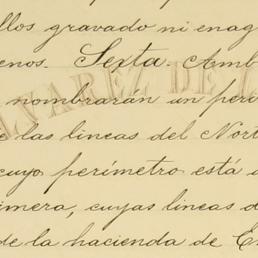 llos gravado ni enag
enos. Sexta. Amb
nombrarán un peri
e las lineas del Nort
cuyo perímetro está
imera, cuyas lineas d
de la hacienda de En
ALVAREZ DE